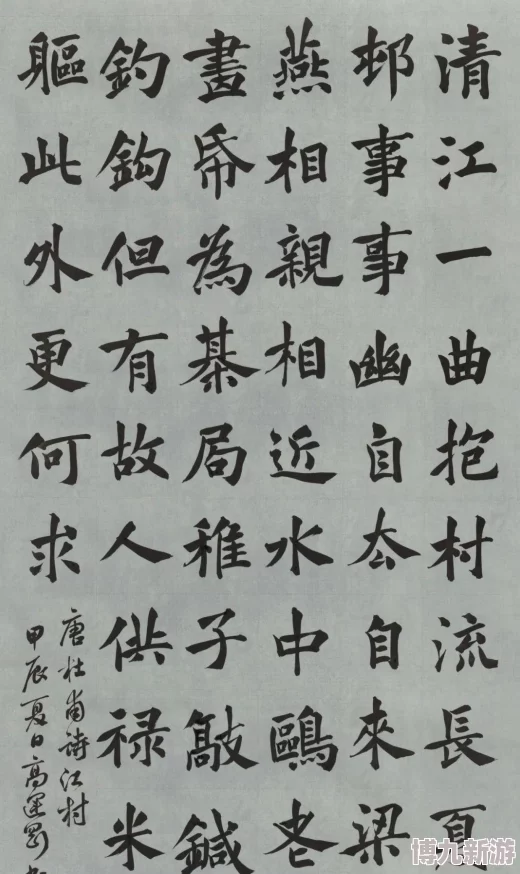 清江一曲抱村流長夏
邨事事幽自去自來梁
燕相親相近水中鷗老
畫帋為棊局稚子敲鍼
釣鈎但有故人供禄米
軀此外更何求
唐杜甫詩江村
甲辰夏日高運
博九新游